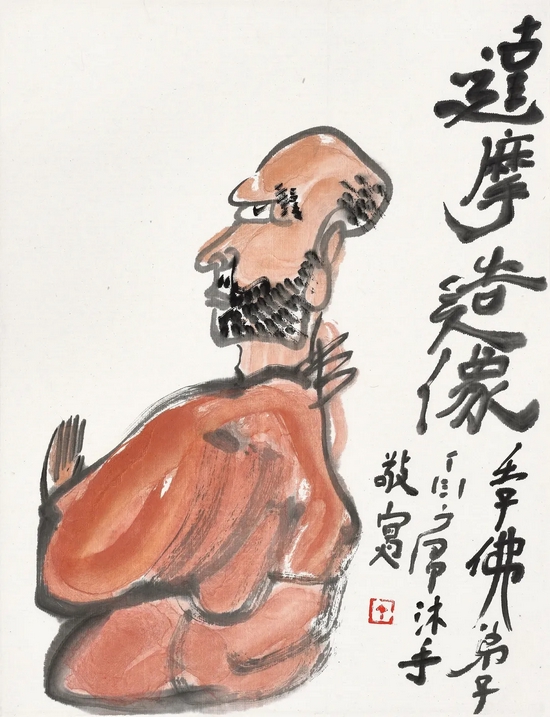 達摩造像
壬子佛弟子
丁衍庸沐手
敬寫